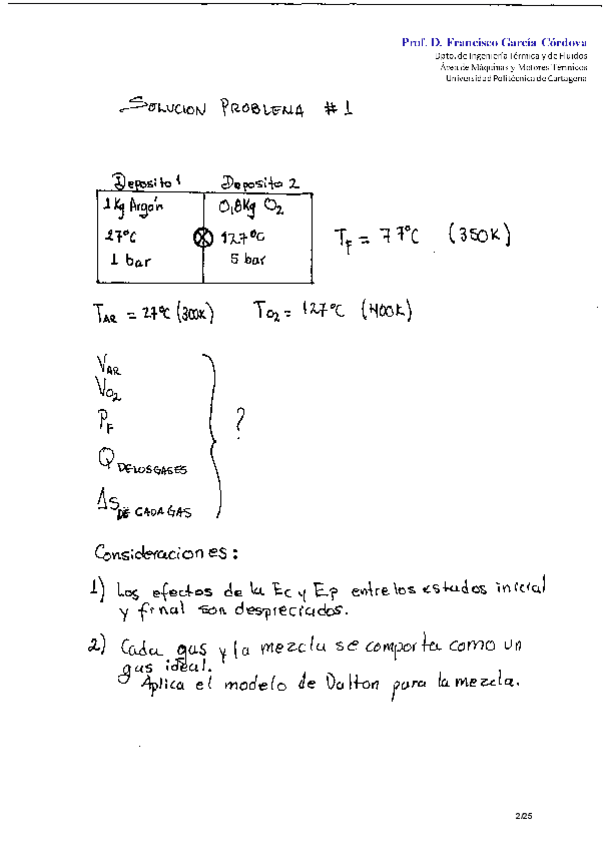 Prof. D. Francisco García Córdova
Dpto. de Ingeniería Térmica y de Fluidos
Área de Máquinas y Motores Termicos
Universidad Politécnica de Cartagena
SOLUCION PROBLEMA #1
Deposito 1 Deposito 2
1 Kg Argón 0,8Kg O2
27ºC 127ºC
1 bar 5 bar
TF = 77ºC (350K)
TAR = 27ºC (300K) TO2 = 127ºC (400K)
VAR
VO2
PF
Q DE LOS GASES
ΔS DE CADA GAS
?
Consideraciones:
1) Los efectos de la Ec y Ep entre los estados inicial
y final son despreciados.
2) Cada gas y la mezcla se comporta como un
gas ideal.
Aplica el modelo de Dalton para la mezcla.
2/25